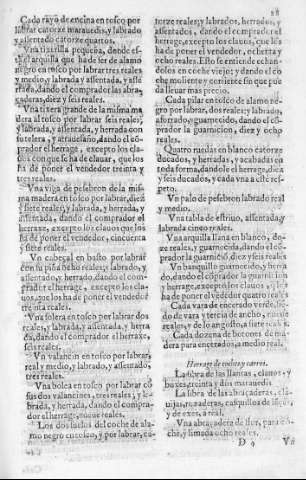 28
Cada rayo de encina en tosco por
labrar catorze marauedis, y labrado
y assentado catorze quartos.
Vna tixerilla pequeña, donde es-
de ser de alamo
negro en tosco por labrar tres reales
y medio, y labrada y assentada, y assé
dando el comprador las abra-
çaderas, diez y seis reales.
Vna tixera grande de la misma ma
dera al tosco por labrar seis reales,
y labrada, y assentada, y herrada con
sutelera, y atrauesaño, dando el cō-
prador el herrage, excepto los cla-
uos con que se ha de clauar, que los
ha de poner el vendedor treinta y
tres reales.
Vna viga de pesebron de la mis-
ma madera en tosco por labrar, diez
y siete reales, y labrada, y herrada, y
assentada, dando el comprador el
herraxe, excepto los clauos que los
ha de poner el vendedor, cincuenta
y siete reales.
Vn cabeçal en basto por labrar
con su piña ocho reales, y labrado, y
assentado, y herrado, dando el com-
prador el herrage, excepto los cla-
uos, que los ha de poner el vendedor
treinta reales.
Vna solera en tosco por labrar dos
reales, y labrada, y assentada, y herra
da, dando el comprador el herraxe,
seis reales.
Vn valancin en tosco por labrar,
real y medio, y labrado, y assentado,
tres reales.
Vna bolea en tosco por labrar cō
sus dos valancines, tres reales; y la-
brada, y herrada, dando el compra-
dor el herrage, nueue reales.
Los dos lados del coche de ala-
mo negro en tosco, y por labrar, ca-
torze reales, y labrados, herrados, y
assentados, dando el comprador el
herrage, excepto los clauos, que los
ha de poner el vendedor, ochenta y
ocho reales. Esto se entiende endo-
nandolos en coche viejo; y dando el co
che molien te y corriente sin que pue
da lleuar mas precio.
Cada pilar en tosco de alamo ne-
gro por labrar, dos reales; y labrado,
aforrado, y guarnecido, dando el cō-
prador la guarnicion, diez y ocho
reales.
Quatro ruedas en blanco catorze
ducados, y herradas, y acabadas en
toda forma, dandole el herrage, diez
y seis ducados, y cada vna a este res-
peto.
Vn palo de pesebron labrado real
y medio.
Vna tabla de estriuo, assentada, y
labrada cinco reales.
Vna arquilla llana en blanco, do-
ze reales, y guarnecida, dando el cō-
prador la guarniciō, diez y seis reales
Vn banquillo guarnecido, y herra
do, dando el comprador la guarnicion
y herrage, excepto los clauos, que los
ha de poner el vendedor quatro reales
Cada vara de encerado verde, sien-
do de vara y tercia de ancho, nueue
reales, y de lo angosto, a siete reales.
Cada dozena de botones de ma
dera para encerados, a medio real.
Herrage de coches y carros.
La libra de las llantas, clauos, y
buxes, treinta y dos marauedis
La libra de las abraçaderas, cla-
uijas, rodaderas, casquillos de
y de exes, a real.
Vna abraçadera de
che, y limada ocho reales.
D 4 Vn